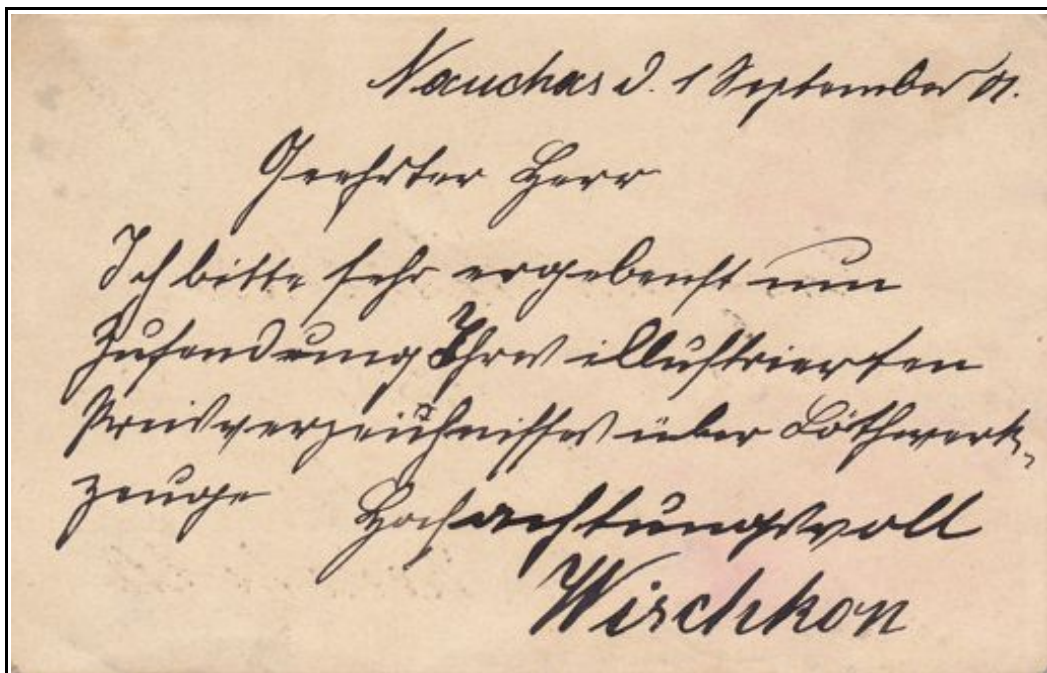 Nauchas d. 1 September 01.
Geehrter Herr
Ich bitte sehr ergebenst um
Zusendung Ihres illustrierten
Preisverzeichnisses über Löthwerk-
zeuge
Hochachtungsvoll
Wischkon